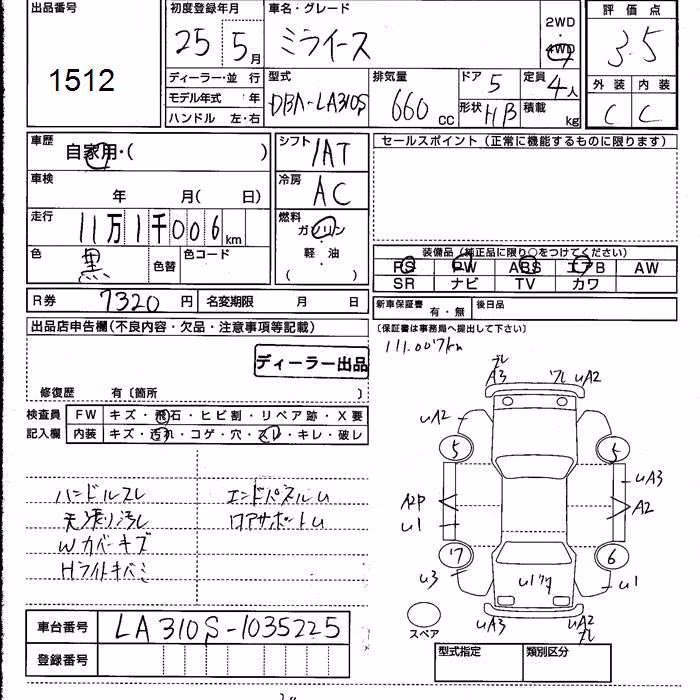 出品番号
1512
初度登録年月
25 5月
車名・グレード
ミライース
2WD
4WD
評価点
3.5
外装 内装
C C
ディーラー・並 行
モデル年式 年
ハンドル 左・右
型式
DBA-LA310S
排気量
660 cc
ドア 5
形状 HB
定員 4人
積載 kg
車歴
自家用・( )
車検
年 月( 日)
走行
11万1千006km
色
黒
色替
色コード
シフト
IAT
冷房
AC
燃料
ガソリン
・
軽 油
( )
セールスポイント(正常に機能するものに限ります)
装備品(純正品に限り○をつけてください)
PS PW ABS エアB AW
SR ナビ TV カワ
R券 7320 円 名変期限 月 日
新車保証書 有・無 後日品
(保証書は事務局へ提出して下さい)
111.007km
出品店申告欄(不良内容・欠品・注意事項等記載)
ディーラー出品
修復歴 有〔箇所 〕
検査員
記入欄
FW キズ・飛石・ヒビ割・リペア跡・X要
内装 キズ・汚れ・コゲ・穴・スレ・キレ・破レ
ハンドルスレ
天張り汚レ
Wカバーキズ
Hライトキバミ
エンドパネルU
ロアサポートU
A3 ワレ UA2
UA2
5 5
UA3
A2P
U1
A2
7 6
U3
U1
UA3 UA2
スペア
車台番号 LA310S-1035225
登録番号
型式指定 類別区分